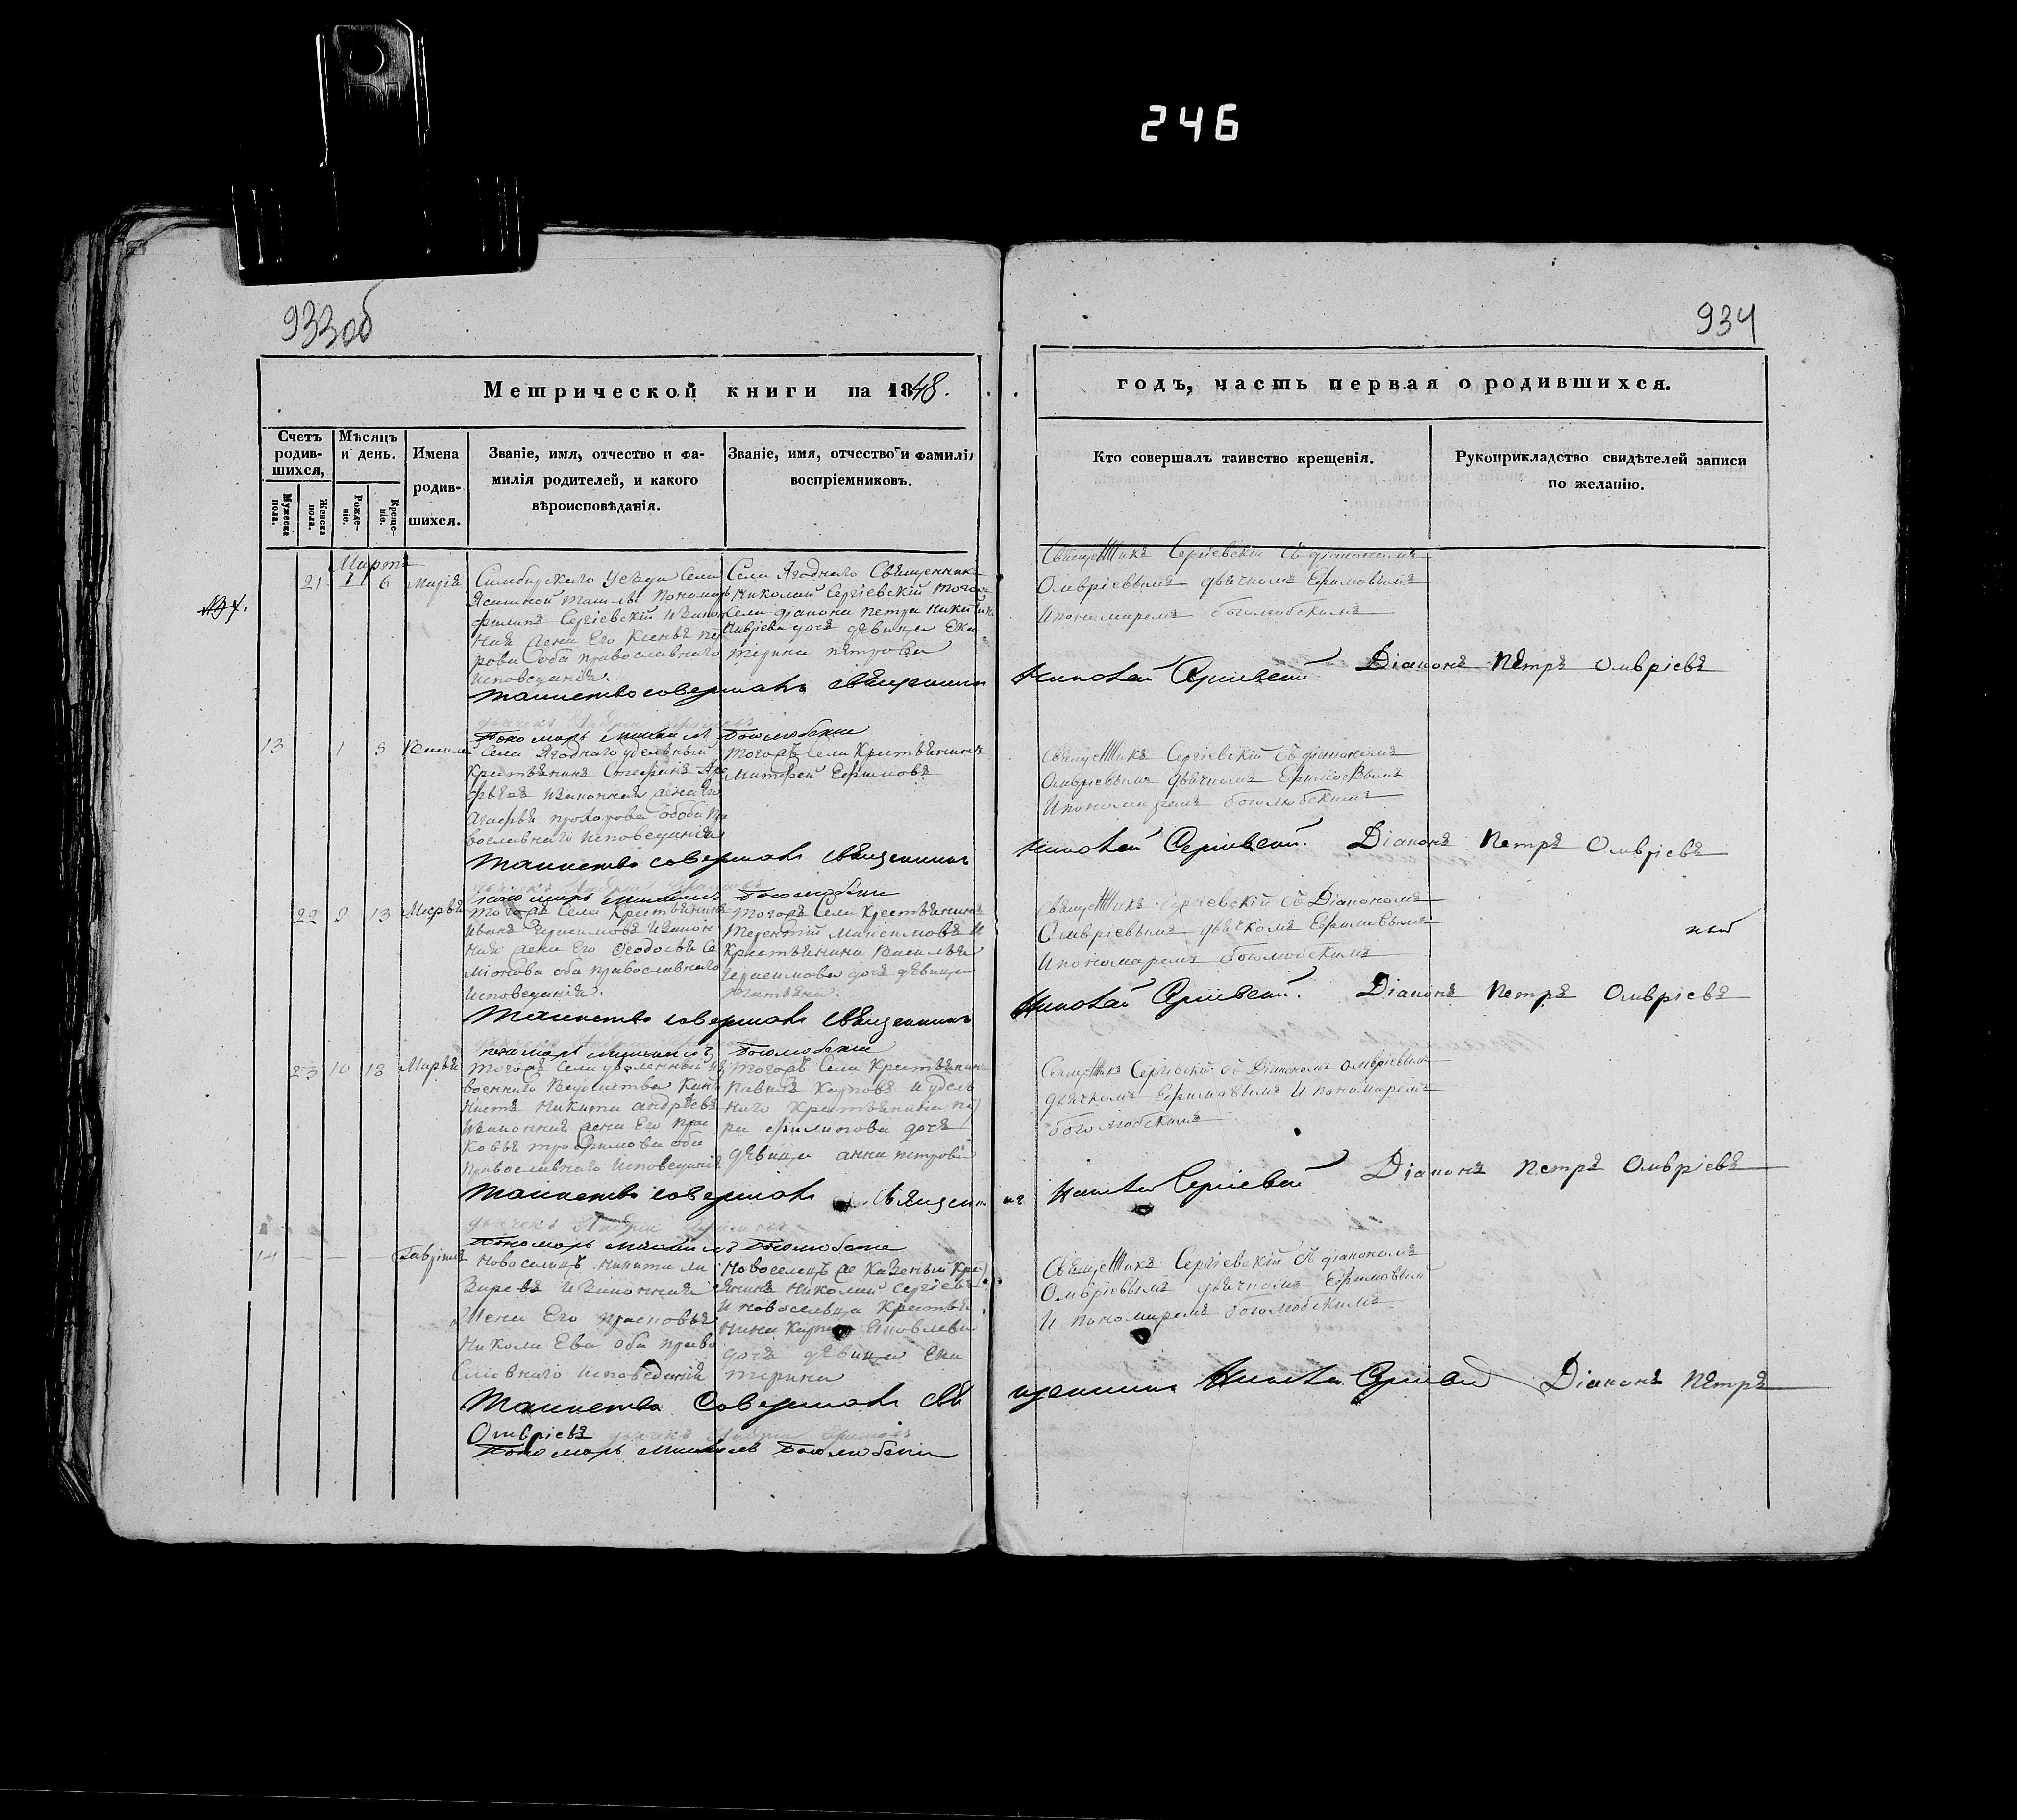 246
933об
934
Метрической книги на 1848.
годъ, часть первая о родившихся.
Счетъ родив-шихся,
Мужеска пола.
Женска пола.
Мѣсяцъ и день.
Рожде-ніе.
Креще-ніе.
Имена родив-шихся.
Званіе, имя, отчество и фа-
милія родителей, и какого
вѣроисповѣданія.
Званіе, имя, отчество и фамилія
воспріемниковъ.
Кто совершалъ таинство крещенія.
Рукоприкладство свидѣтелей записи
по желанію.
Мартъ
21 1 6 Марія
Симбирскаго уезда села
Пономарь
Филипъ Сергіевскій и закон
ная жена Его
рова Оба православнаго
исповеданія.
Села Ягоднаго Священникъ
Николай Сергіевскій того же
села діакона Петра
Омвріева дочь девица Ека
терина Петрова
Священникъ Сергіевскій съ діакономъ
Омвріевымъ дьячкомъ Ефимовымъ
и пономаремъ боголюбскимъ
Таинство совершалъ священникъ Николай Сергіевскій Діаконъ Петръ Омвріевъ
дьячекъ Андрей Ефимовъ
Пономарь Михаилъ Боголюбскій
13 1 Василий
Села Ягоднаго удельный
Крестьянинъ Стефанъ
и законная жена Его
Прохорова обоба пра
вославнаго исповеданія
тогожъ села Крестьянинъ
Ефимовъ
Священникъ Сергіевскій съ діакономъ
Омвріевымъ дьячкомъ Ефимовымъ
и пономаремъ боголюбскимъ
Таинство совершалъ священникъ Николай Сергіевскій. Діаконъ Петръ Омвріевъ
дьячекъ Андрей Ефимовъ
Пономарь Михаилъ Боголюбскій
22 9 13 Марѳа
тогожъ села Крестьянинъ
Иванъ Герасимовъ и закон
ная жена Его Ѳеодосья Се
міонова оба православнаго
исповеданія.
тогожъ села Крестьянинъ
Терентій Максимовъ и
Крестьянина Василья
Герасимова дочь девица
Священникъ Сергіевскій съ Діакономъ
Омвріевымъ дьячкомъ Ефимовымъ
и пономаремъ боголюбскимъ
Таинство совершалъ священникъ Николай Сергіевскій. Діаконъ Петръ Омвріевъ
Пономарь Михаилъ Боголюбскій
23 10 13 Марѳа
тогожъ села уволенный изъ
военнаго Ведомства Канто
нистъ Никита Андреевъ
и законная жена Его Прас
ковья Трофимова оба
православнаго исповеданія
тогожъ села Крестьянинъ
Павелъ Карповъ и удель
наго Крестьянина Пе
тра Филипова дочь
девица Анна Петрова
Священникъ Сергіевскій съ Діакономъ Омвріевымъ
дьячкомъ Ефимовымъ и пономаремъ
боголюбскимъ
Таинство совершалъ священникъ Николай Сергіевскій Діаконъ Петръ Омвріевъ
дьячекъ Андрей Ефимовъ
Пономарь Михаилъ Боголюбскій
14 — — — Гавріилъ
Новоселецъ Никита
и законная
жена Его Прасковья
Николаева оба право
славнаго исповеданія
Новоселецъ же Казеный Кре
стьянинъ Николай Сергіевъ
и новосельца Крестья
нина Карпа Яковлева
дочь девица Ека
терина
Священникъ Сергіевскій съ діакономъ
Омвріевымъ дьячкомъ Ефимовымъ
и пономаремъ боголюбскимъ
Таинство совершалъ священникъ Николай Сергіевскій Діаконъ Петръ
Омвріевъ дьячекъ Андрей Ефимовъ
Пономарь Михаилъ Боголюбскій